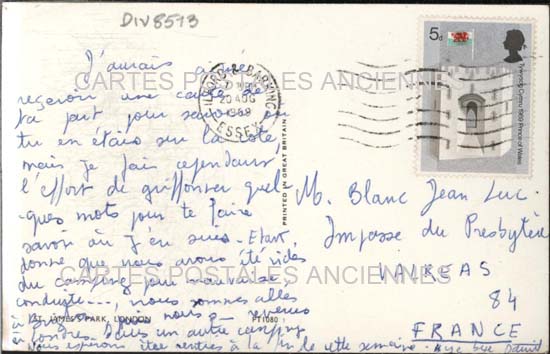 DIV8513
J'aurais aimé
recevoir une carte de
ta part pour savoir où
tu en étais sur la côte,
mais je fais cependant
l'effort de griffonner quel
-ques mots pour te faire
savoir où j'en suis - Etant
donné que nous avons été vidés
du camping pour mauvaise
conduite..., nous sommes allés
à nous revenus
à Londres dans un autre camping
Nous espérons être rentrés à la fin de cette semaine. Bye bye Daniel
CARTES POSTALES ANCIENNES
CARTES POSTALES ANCIENNES
ILFORD & BARKING
20 AUG
1969
ESSEX
5d
Tywysog Cymru 1969 Prince of Wales
PRINTED IN GREAT BRITAIN
M. Blanc Jean Luc.
Impasse du Presbytère
VALREAS
84
FRANCE
ST. JAMES'S PARK, LONDON
PT1080